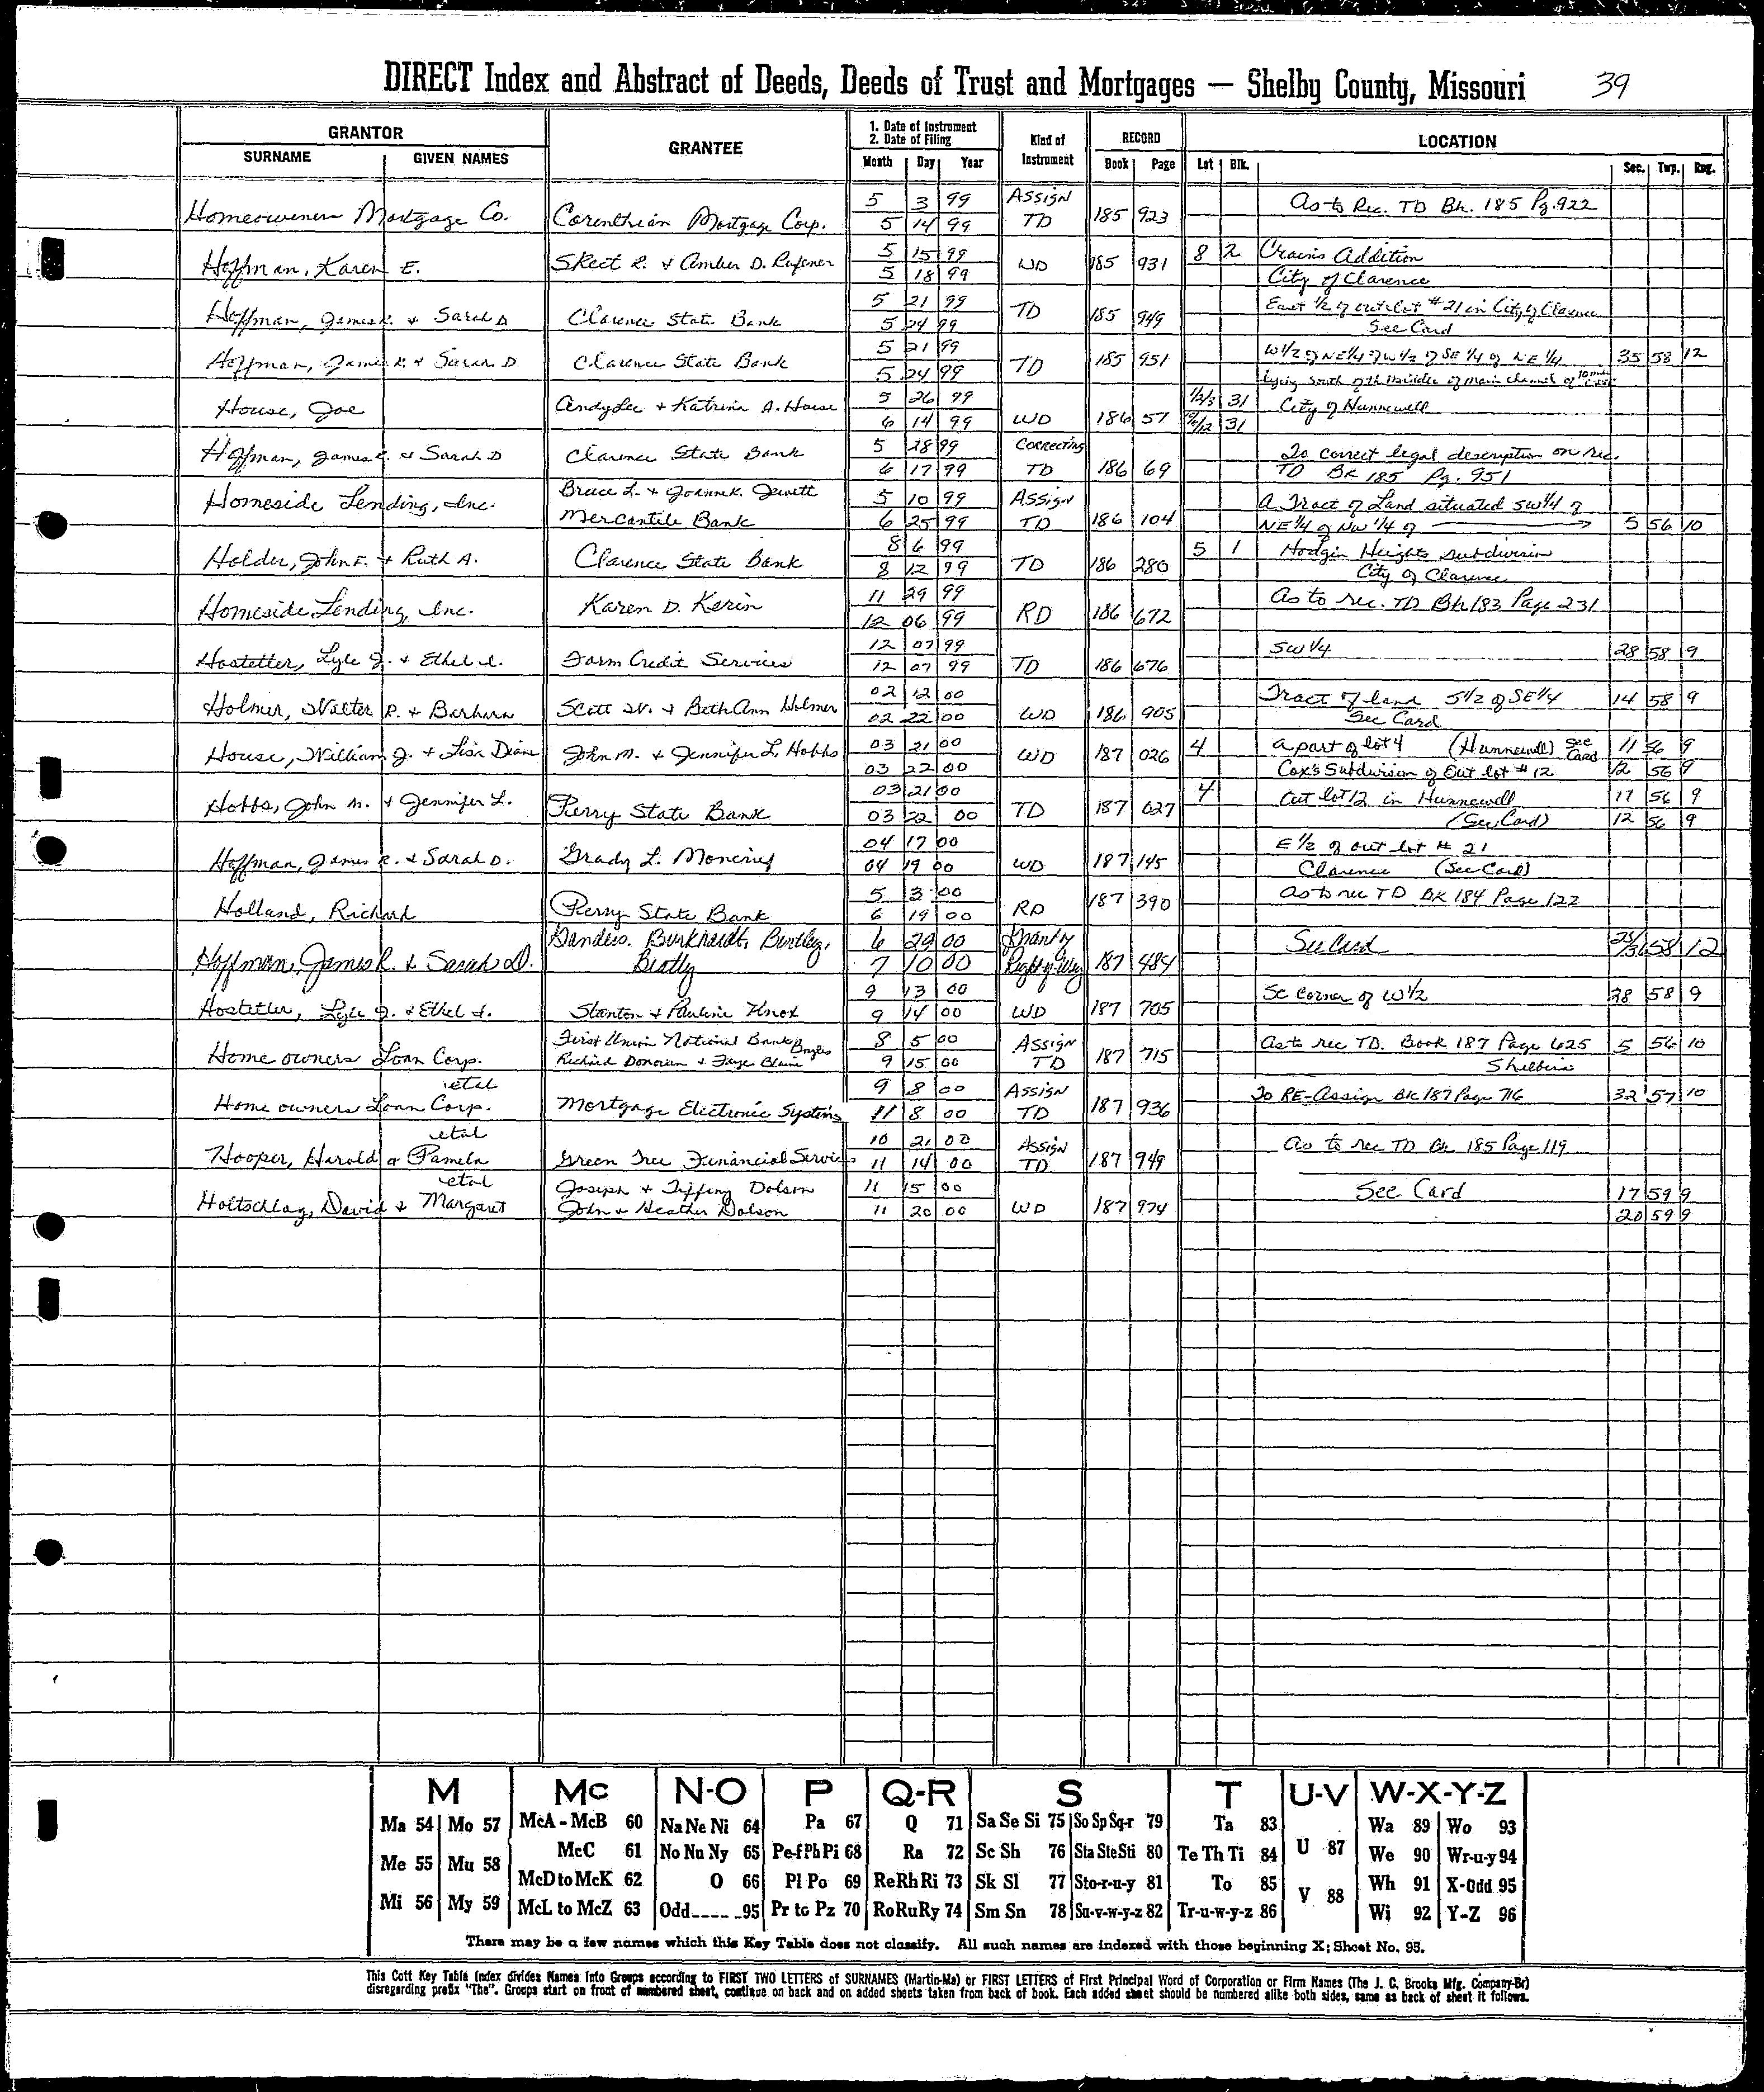 DIRECT Index and Abstract of Deeds, Deeds of Trust and Mortgages — Shelby County, Missouri 39
GRANTOR GRANTEE 1. Date of Instrument 2. Date of Filing Kind of Instrument RECORD LOCATION
SURNAME GIVEN NAMES Month Day Year Book Page Lot Blk. Sec. Twp. Rng.
Homeowners Mortgage Co. Corenthian Mortgage Corp. 5 3 99 Assign 185 923 As to Rec. TD Bk. 185 Pg. 922
5 14 99 TD
Hoffman, Karen E. Skeet R. & Amber D. 5 15 99 WD 185 931 8 2 Addition
5 18 99 City of Clarence
Hoffman, James R. & Sarah D Clarence State Bank 5 21 99 TD 185 949 East 1/2 of outlot #21 in City of Clarence
5 24 99 See Card
Hoffman, James R. & Sarah D. Clarence State Bank 5 21 99 TD 185 951 W1/2 of NE1/4 of W1/2 of SE 1/4 of NE 1/4 35 58 12
5 24 99 lying South of the Middle of main channel of
House, Joe Andy Lee & Katrina A. House 5 26 99 WD 186 51 1/2/3 31 City of Hunnewell
6 14 99 31
Hoffman, James R. & Sarah D Clarence State Bank 5 28 99 Correcting 186 69 To correct legal description on rec.
6 17 99 TD TD Bk 185 Pg. 951
Homeside Lending, Inc. Bruce L. & Joanne K. Jewett 5 10 99 Assign 186 104 A Tract of Land situated SW1/4 of
Mercantile Bank 6 25 99 TD NE1/4 of NW 1/4 of 5 56 10
Holder, John E. & Ruth A. Clarence State Bank 8 6 99 TD 186 280 5 1 Hodgin Heights subdivision
8 12 99 City of Clarence
Homeside Lending, Inc. Karen D. Kerin 11 29 99 RD 186 672 As to rec. TD Bk 183 Page 231
12 06 99
Hostetter, Lyle J. & Ethel I. Farm Credit Services 12 07 99 TD 186 676 SW 1/4 28 58 9
12 07 99
Holmer, Walter R. & Barbara Scott W. & Beth Ann Holmer 02 12 00 WD 186 905 Tract of land S1/2 of SE1/4 14 58 9
02 22 00 See Card
House, William J. & Lisa Diane John M. & Jennifer L. Hobbs 03 21 00 WD 187 026 4 a part of lot 4 (Hunnewell) See Card 11 56 9
03 22 00 Cox's Subdivision of Out lot #12 12 56 9
Hobbs, John M. & Jennifer L. Perry State Bank 03 21 00 TD 187 027 4 Out lot 12 in Hunnewell 11 56 9
03 22 00 (See Card) 12 56 9
Hoffman, James R. & Sarah D. Grady L. Moncrief 04 17 00 WD 187 145 E 1/2 of out lot # 21
04 19 00 Clarence (See Card)
Holland, Richard Perry State Bank 5 3 00 RD 187 390 As to rec TD BK 184 Page 122
6 19 00
Hoffman, James R. & Sarah D. Sanders, Burkhardt, Bentley, 6 29 00 Grant of 187 484 See Card 58 12
Beatty 7 10 00 Right-of-Way
Hostetter, Lyle J. & Ethel I. Stanton & Pauline Knox 9 13 00 WD 187 705 SE corner of W1/2 28 58 9
9 14 00
Home owners Loan Corp. First Union National Bank 8 5 00 Assign 187 715 As to rec TD. Book 187 Page 625 5 56 10
etal Richard Donovan & Faye Elaine Bogles 9 15 00 TD Shelbina
Home owners Loan Corp. Mortgage Electronic Systems 9 8 00 Assign 187 936 To RE-Assign BK 187 Page 716 32 57 10
etal 11 8 00 TD
Hooper, Harold & Pamela Green Tree Financial Servi 10 21 00 Assign 187 949 As to rec TD Bk 185 Page 119
etal 11 14 00 TD
Holtschlag, David & Margaret Joseph & Tiffiny Dolson 11 15 00 WD 187 974 See Card 17 59 9
John & Heather Dolson 11 20 00 20 59 9
M Mc N-O P Q-R S T U-V W-X-Y-Z
Ma 54 Mo 57 McA - McB 60 Na Ne Ni 64 Pa 67 Q 71 Sa Se Si 75 So Sp Sq-r 79 Ta 83 U 87 Wa 89 Wo 93
Me 55 Mu 58 McC 61 No Nu Ny 65 Pe-f Ph Pi 68 Ra 72 Sc Sh 76 Sta Ste Sti 80 Te Th Ti 84 We 90 Wr-u-y 94
McD to McK 62 O 66 Pl Po 69 Re Rh Ri 73 Sk Sl 77 Sto-r-u-y 81 To 85 V 88 Wh 91 X-Odd 95
Mi 56 My 59 McL to McZ 63 Odd 95 Pr to Pz 70 Ro Ru Ry 74 Sm Sn 78 Su-v-w-y-z 82 Tr-u-w-y-z 86 Wi 92 Y-Z 96
There may be a few names which this Key Table does not classify. All such names are indexed with those beginning X; Sheet No. 95.
This Cott Key Table Index divides Names into Groups according to FIRST TWO LETTERS of SURNAMES (Martin-Ma) or FIRST LETTERS of First Principal Word of Corporation or Firm Names (The J. C. Brooks Mfg. Company-Br)
disregarding prefix "The". Groups start on front of numbered sheet, continue on back and on added sheets taken from back of book. Each added sheet should be numbered alike both sides, same as back of sheet it follows.